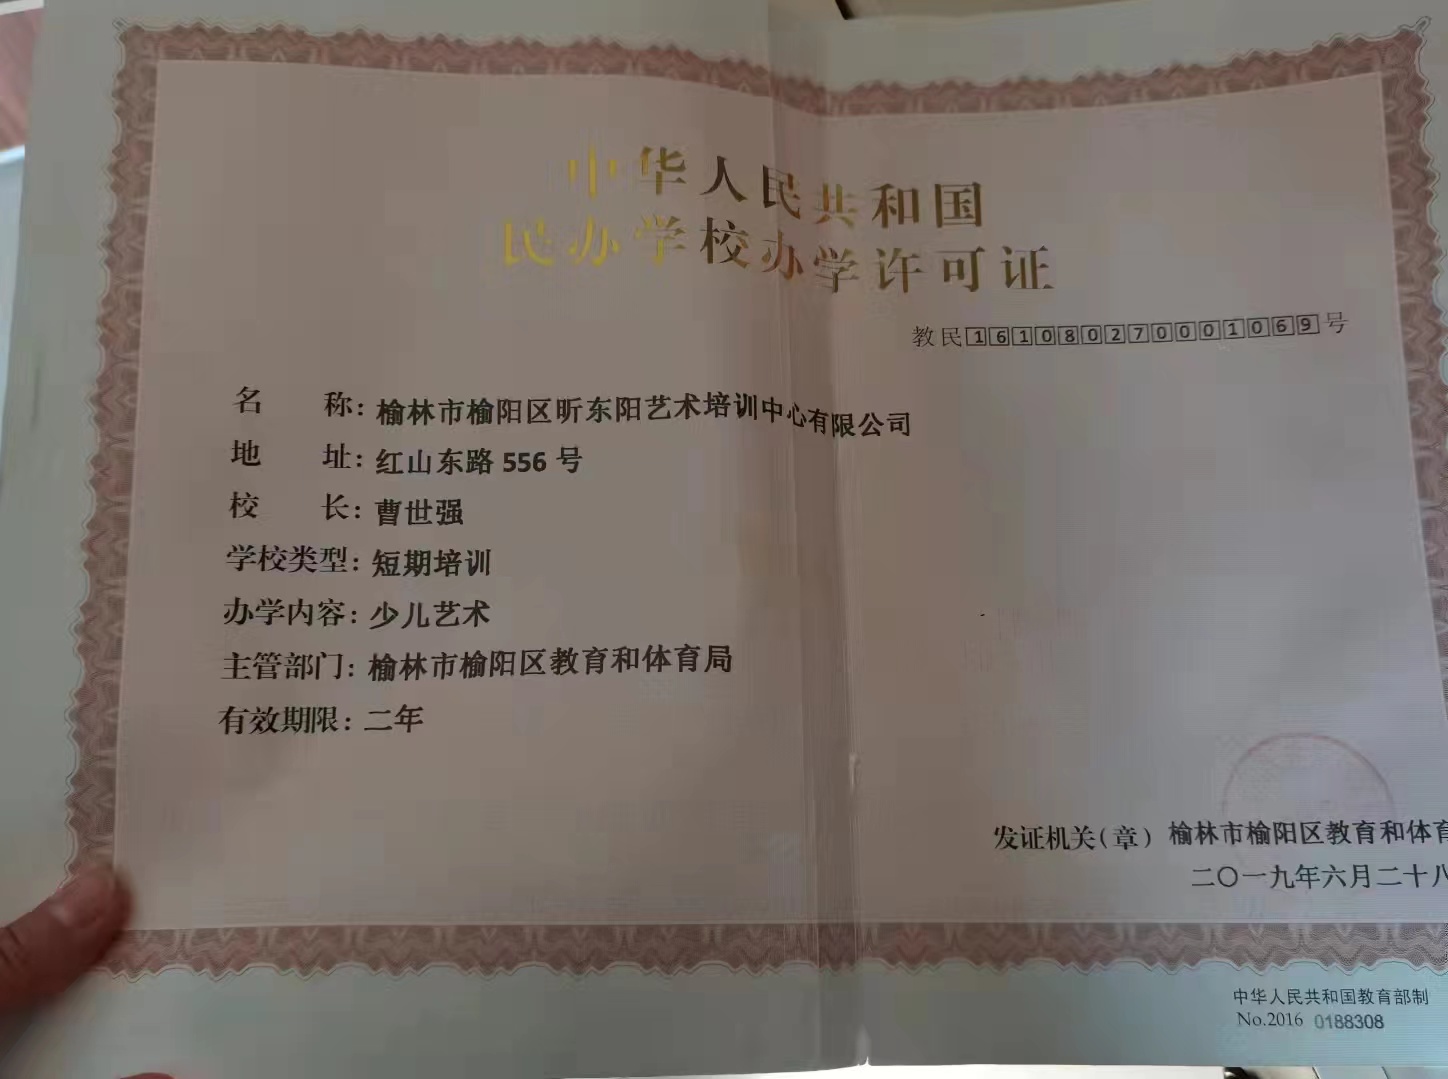 中华人民共和国
民办学校办学许可证
教民161080270001069号
名 称：榆林市榆阳区昕东阳艺术培训中心有限公司
地 址：红山东路 556 号
校 长：曹世强
学校类型：短期培训
办学内容：少儿艺术
主管部门：榆林市榆阳区教育和体育局
有效期限：二年
发证机关（章）榆林市榆阳区教育和体育
二〇一九年六月二十八
中华人民共和国教育部制
No.2016 0188308